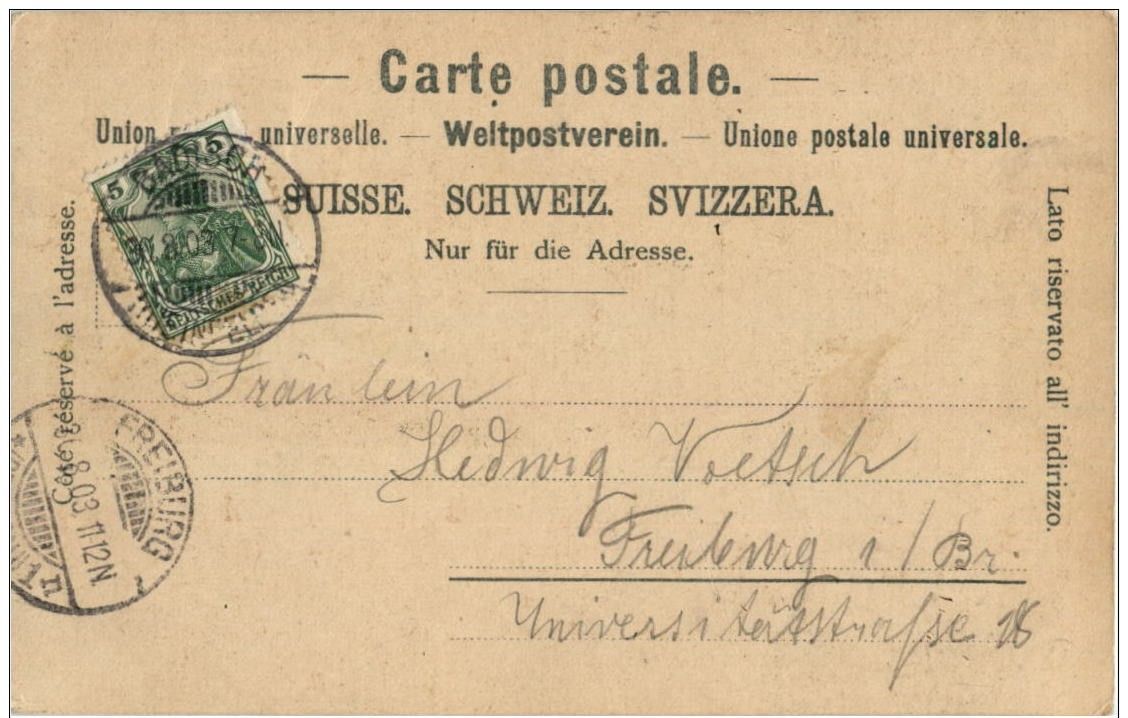 — Carte postale. —
Union universelle. — Weltpostverein. — Unione postale universale.
SUISSE. SCHWEIZ. SVIZZERA.
Nur für die Adresse.
Côté réservé à l'adresse.
Lato riservato all' indirizzo.
5 5
DEUTSCHES REICH
8.03 7-8N
Fräulein
Hedwig Voetsch
Freiburg i/Br.
Universitätstrasse
FREIBURG
8.03 11-12N